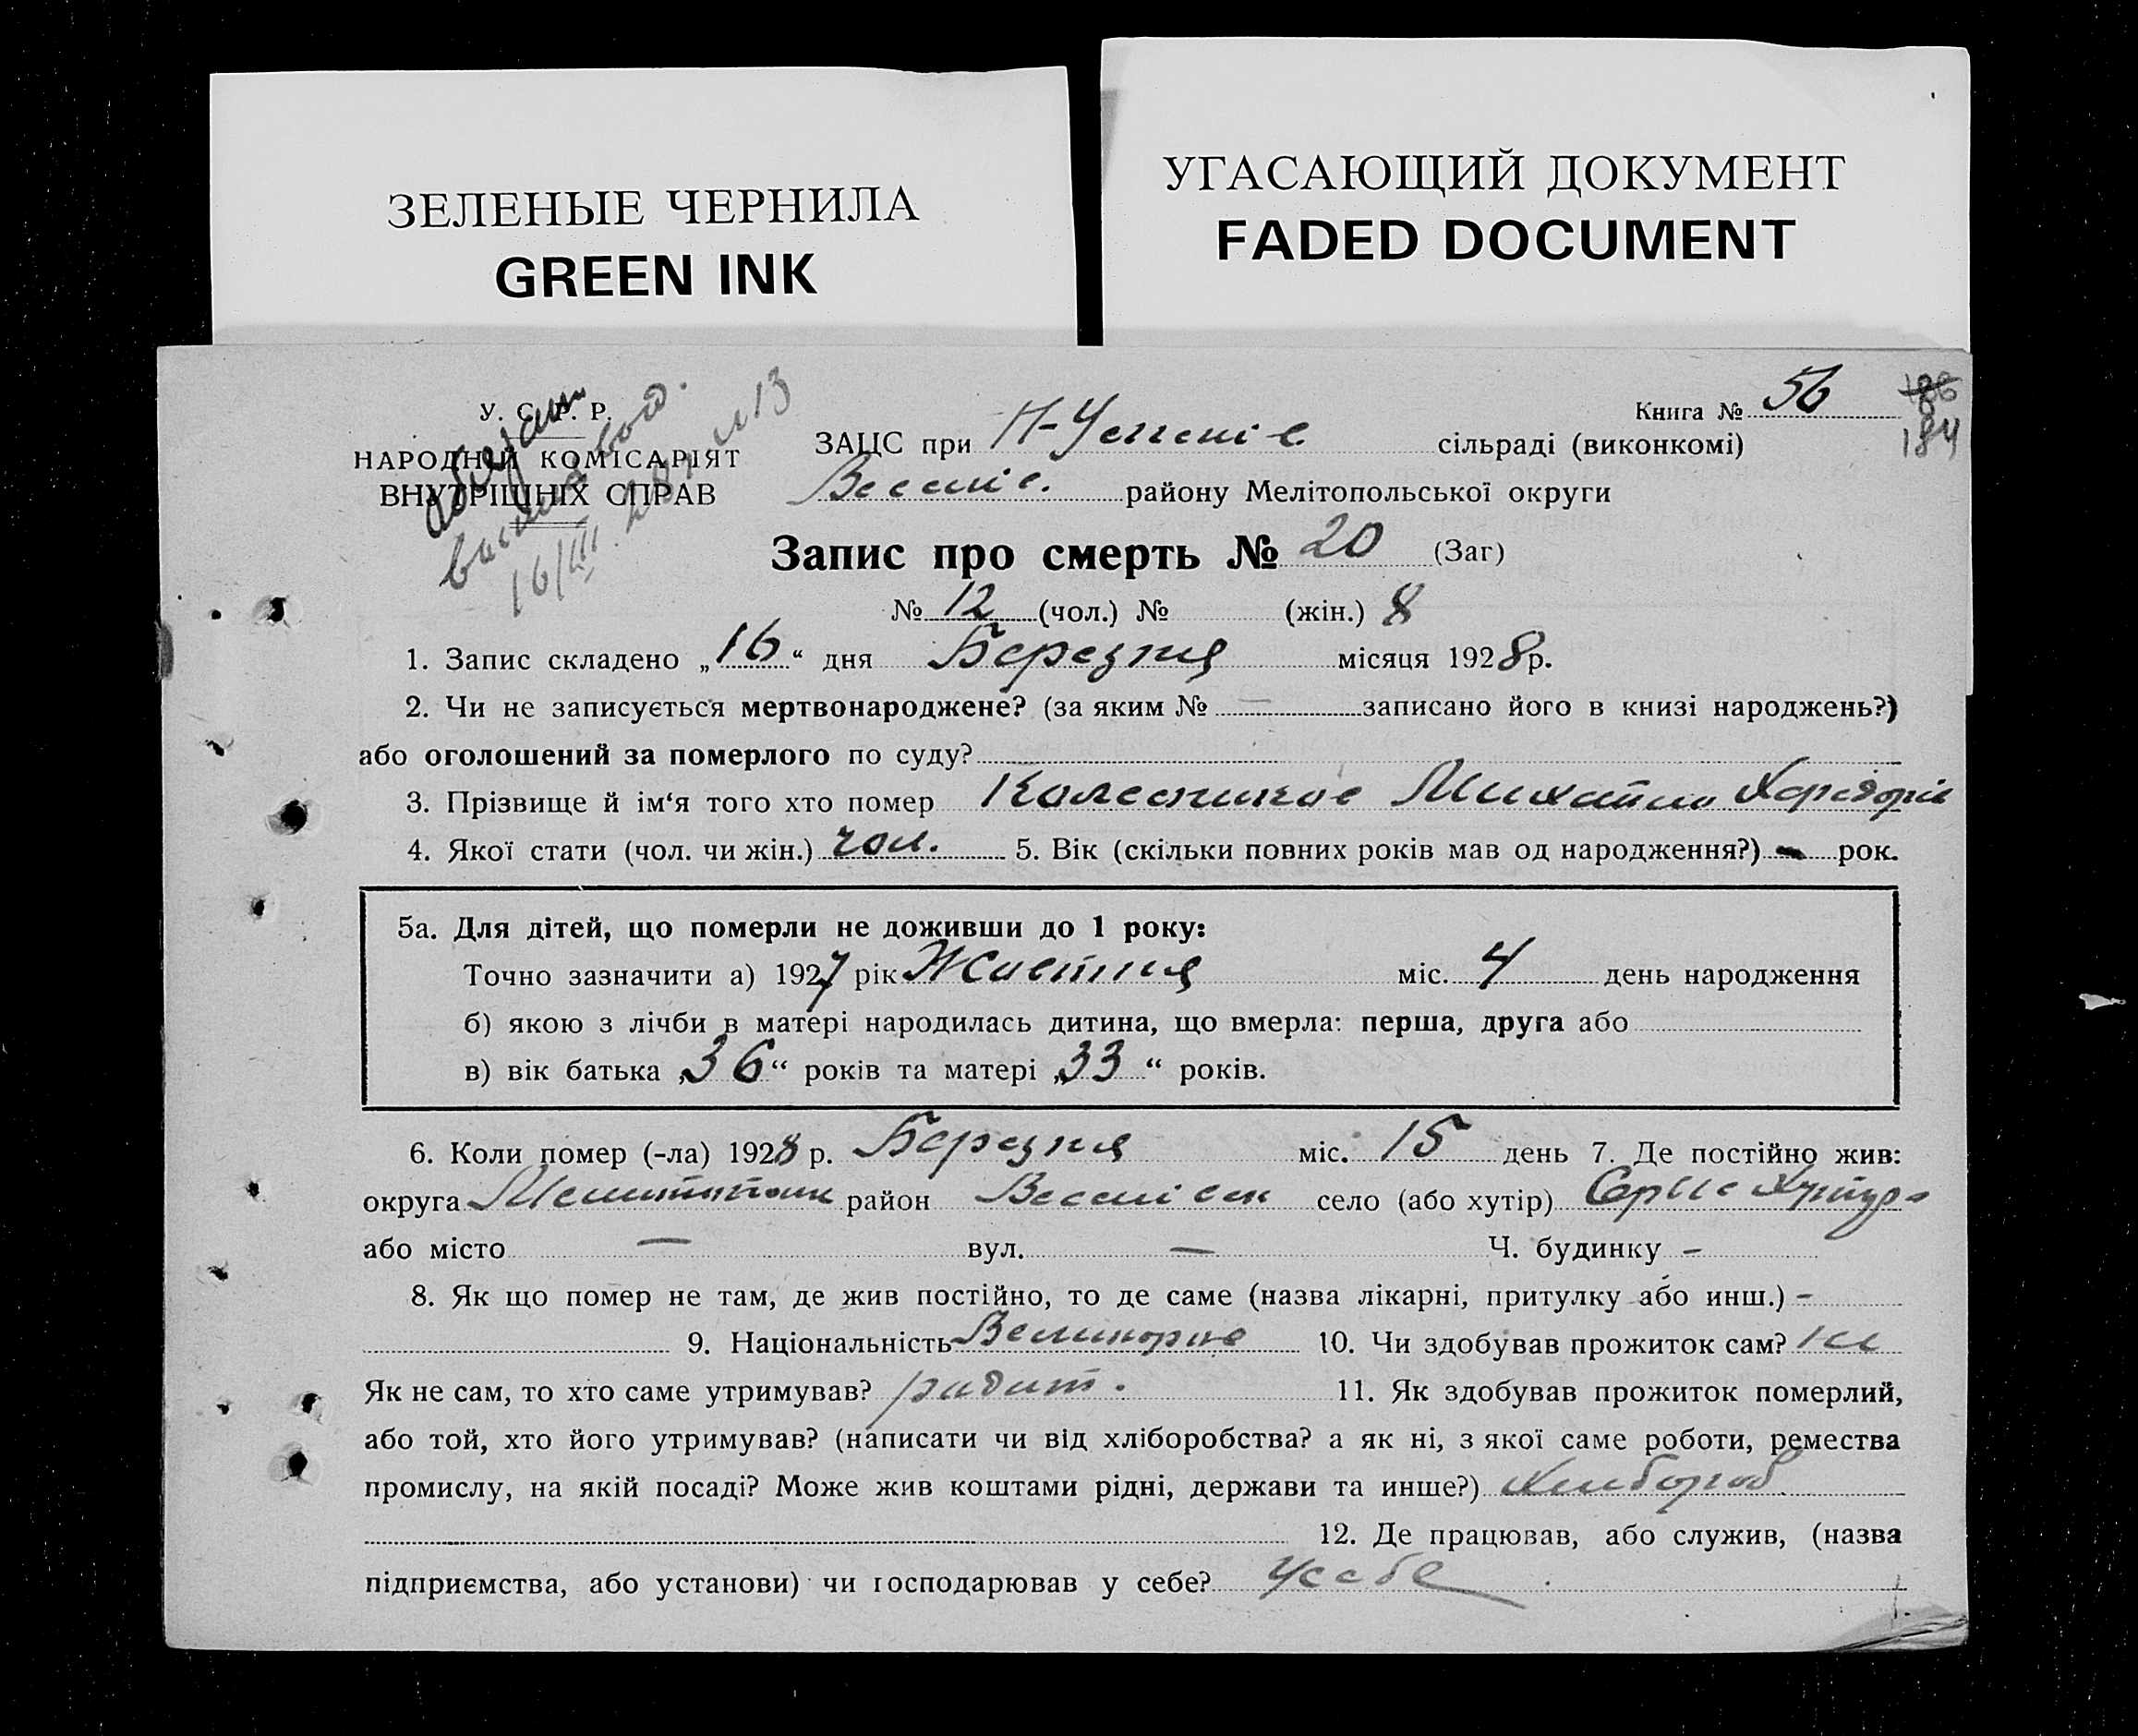 ЗЕЛЕНЫЕ ЧЕРНИЛА
GREEN INK
УГАСАЮЩИЙ ДОКУМЕНТ
FADED DOCUMENT
Книга № 56
186
184
У. С. Р. Р.
НАРОДНІЙ КОМІСАРІЯТ
ВНУТРІШНІХ СПРАВ
16/III 28
ЗАЦС при Н-Успенів сільраді (виконкомі)
Веселів. району Мелітопольської округи
Запис про смерть № 20 (Заг)
№ 12 (чол.) № (жін.) 8
1. Запис складено „16“ дня Березня місяця 1928 р.
2. Чи не записується мертвонароджене? (за яким № — записано його в книзі народжень?)
або оголошений за померлого по суду?
3. Прізвище й ім‘я того хто помер Колесників Михайло
4. Якої стати (чол. чи жін.) чол. 5. Вік (скільки повних років мав од народження?) — рок.
5а. Для дітей, що померли не доживши до 1 року:
Точно зазначити а) 1927 рік Жовтня міс. 4 день народження
б) якою з лічби в матері народилась дитина, що вмерла: перша, друга або
в) вік батька „36“ років та матері „33“ років.
6. Коли помер (-ла) 1928 р. Березня міс. 15 день 7. Де постійно жив:
округа Мелитопольн район Веселівськ село (або хутір)
або місто — вул. — Ч. будинку -
8. Як що помер не там, де жив постійно, то де саме (назва лікарні, притулку або инш.) -
9. Національність Великорос 10. Чи здобував прожиток сам? ні
Як не сам, то хто саме утримував? родит. 11. Як здобував прожиток померлий,
або той, хто його утримував? (написати чи від хліборобства? а як ні, з якої саме роботи, ремества
промислу, на якій посаді? Може жив коштами рідні, держави та инше?) хлібороб
12. Де працював, або служив, (назва
підприємства, або установи) чи господарював у себе? у себе